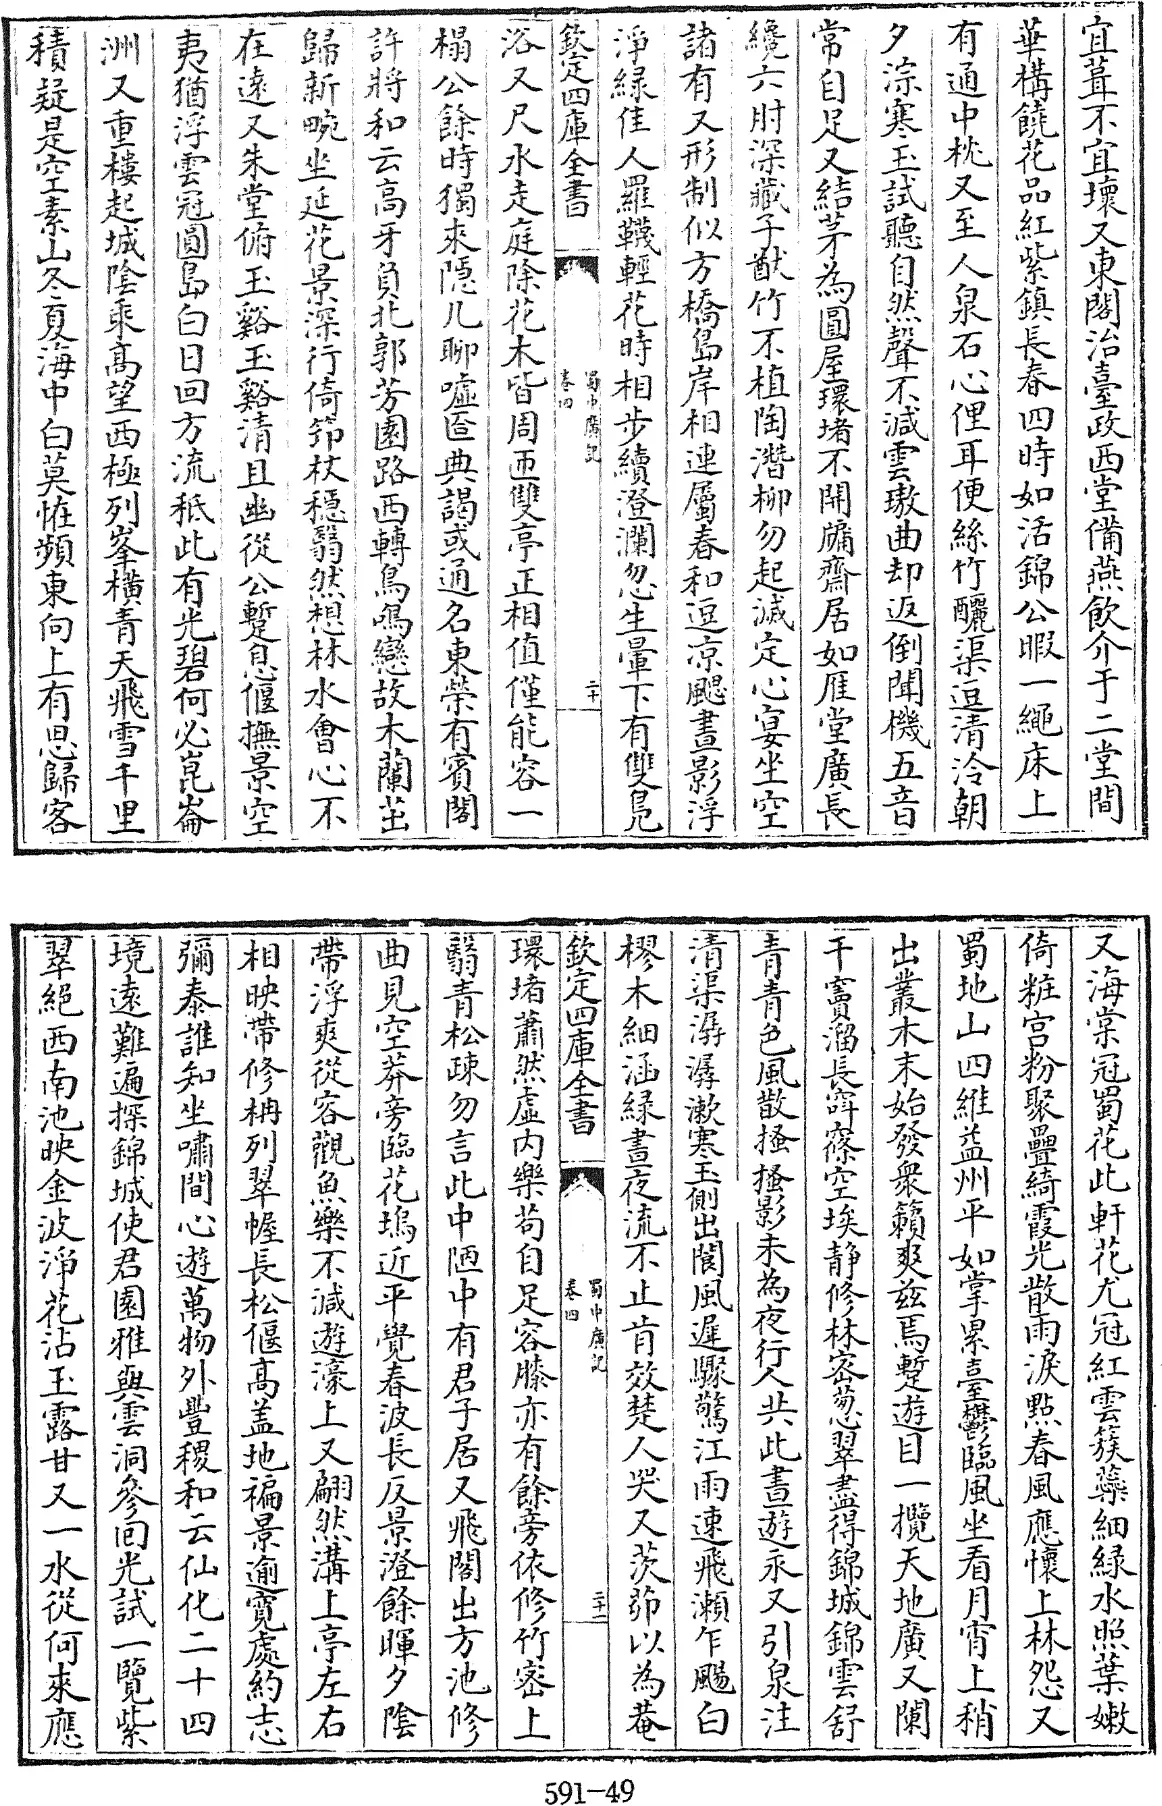 宜葺不宜壞又東閣治臺政西堂備燕飲介于二堂間
華構饒花品紅紫鎮長春四時如活錦公暇一繩床上
有通中枕又至人泉石心俚耳便絲竹釃渠逗清泠朝
夕淙寒玉試聽自然聲不減雲璈曲却返倒聞機五音
常自足又結茅為圓屋環堵不開牖齋居如雁堂廣長
纔六肘深藏子猷竹不植陶潛柳勿起滅定心宴坐空
諸有又形制似方橋島岸相連屬春和逗凉颸晝影浮
淨緑佳人羅韈輕花時相步續澄瀾忽生暈下有雙鳧
欽定四庫全書
蜀中廣記
卷四
二十
浴又尺水走庭除花木皆周匝雙亭正相值僅能容一
榻公餘時獨來隱几聊噓嗒典謁或通名東榮有賓閣
許將和云高牙負北郭芳園路西轉鳥鳴戀故木蘭茁
歸新畹坐延花景深行倚笻杖穩翳然想林水會心不
在遠又朱堂俯玉谿玉谿清且幽從公蹔息偃撫景空
夷猶浮雲冠圓島白日回方流秪此有光碧何必崑崙
洲又重樓起城陰乘高望西極列峯横青天飛雪千里
積疑是空素山冬夏海中白莫恠頻東向上有思歸客
又海棠冠蜀花此軒花尤冠紅雲簇蘂細緑水照葉嫩
倚粧宫粉聚疊綺霞光散雨淚㸃春風應懷上林怨又
蜀地山四維益州平如掌累臺鬱臨風坐看月宵上稍
出叢木末始發衆籟爽兹焉蹔遊目一攬天地廣又闌
干竇溜長窗寮空埃静修林密葱翠盡得錦城錦雲舒
青青色風散搔搔影未為夜行人共此晝遊永又引泉注
清渠潺潺漱寒玉側出閬風遲驟驚江雨速飛瀨乍颺白
樛木細涵緑晝夜流不止肯效楚人哭又茨茆以為菴
欽定四庫全書
蜀中廣記
卷四
二十一
環堵蕭然虛内樂苟自足容膝亦有餘旁依修竹密上
翳青松疎勿言此中陋中有君子居又飛閣出方池修
曲見空莽旁臨花塢近平覺春波長反景澄餘暉夕陰
帶浮爽從容觀魚樂不減遊濠上又翩然溝上亭左右
相映帶修柟列翠幄長松偃高盖地褊景逾寛處約志
彌泰誰知坐嘯間心遊萬物外豐稷和云仙化二十四
境遠難遍探錦城使君園雅與雲洞參回光試一覽紫
翠絶西南池映金波淨花沾玉露甘又一水從何來應
591-49